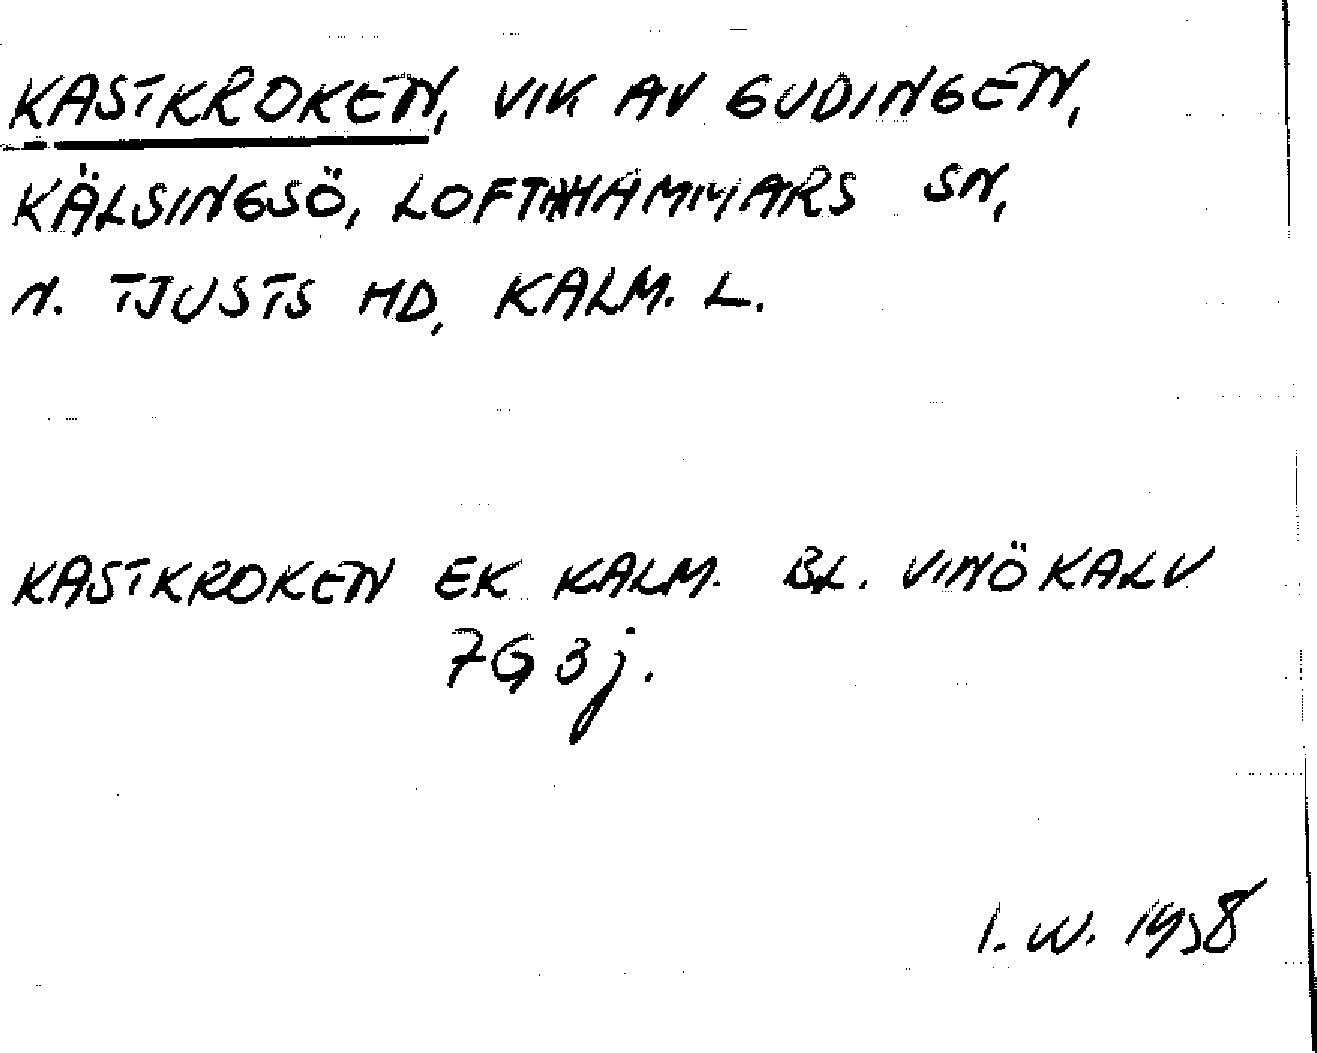 KASTKROKEN, VIK AV GUDINGEN,
KÄLSINGSÖ, LOFTHAMMARS SN,
N. TJUSTS HD, KALM. L.
KASTKROKEN EK KALM. BL. VINÖKALV
7G 3j.
I. W. 1958